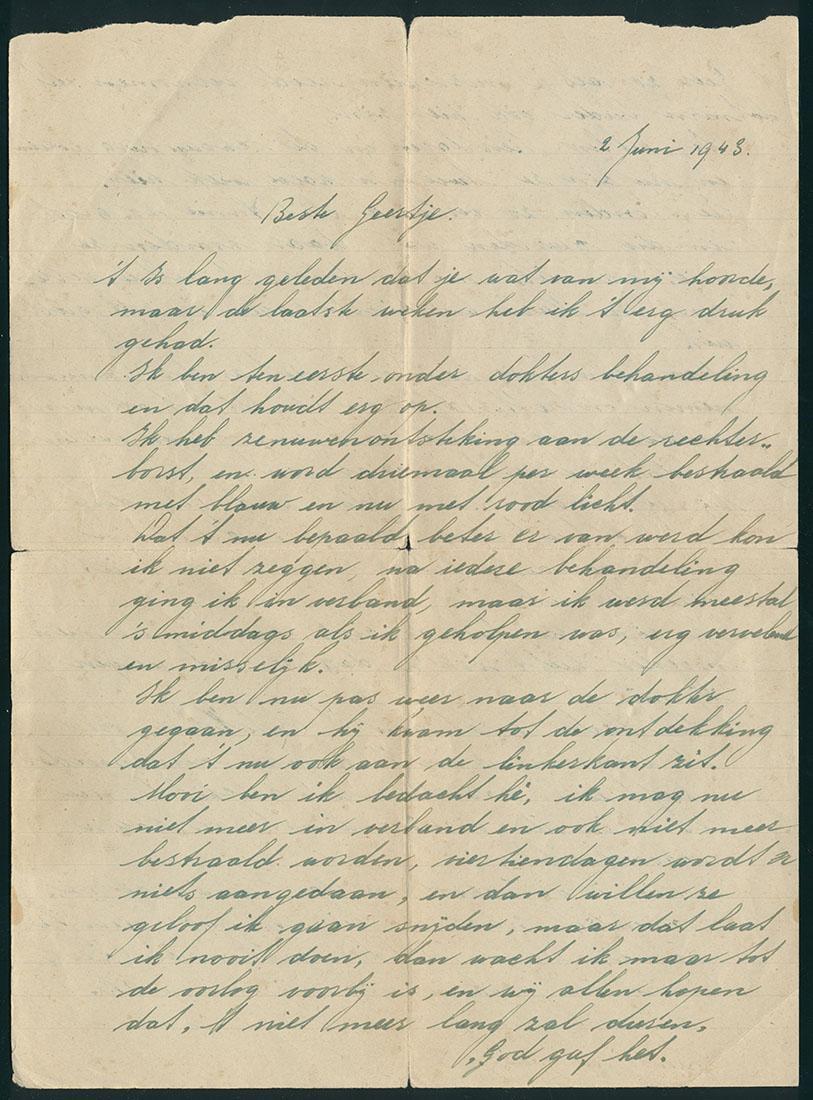 2 Juni 1943.
Beste Geertje.
't Is lang geleden dat je wat van mij hoorde,
maar de laatste weken heb ik 't erg druk
gehad.
Ik ben ten eerste onder dokters behandeling
en dat houdt erg op.
Ik heb zenuwenontsteking aan de rechter"
borst, en word driemaal per week bestraald
met blauw en nu met rood licht.
Dat 't nu bepaald beter er van werd kon
ik niet zeggen, na iedere behandeling
ging ik in verband, maar ik werd meestal
's middags als ik geholpen was, erg vervelend
en misselijk.
Ik ben nu pas weer naar de dokter
gegaan, en hij kwam tot de ontdekking
dat 't nu ook aan de linkerkant zit.
Mooi ben ik bedacht hè, ik mag nu
niet meer in verband en ook niet meer
bestraald worden, viertiendagen wordt er
niets aangedaan, en dan willen ze
geloof ik gaan snijden, maar dat laat
ik nooit doen, dan wacht ik maar tot
de oorlog voorbij is, en wij allen hopen
dat, 't niet meer lang zal duren,
God gaf het.